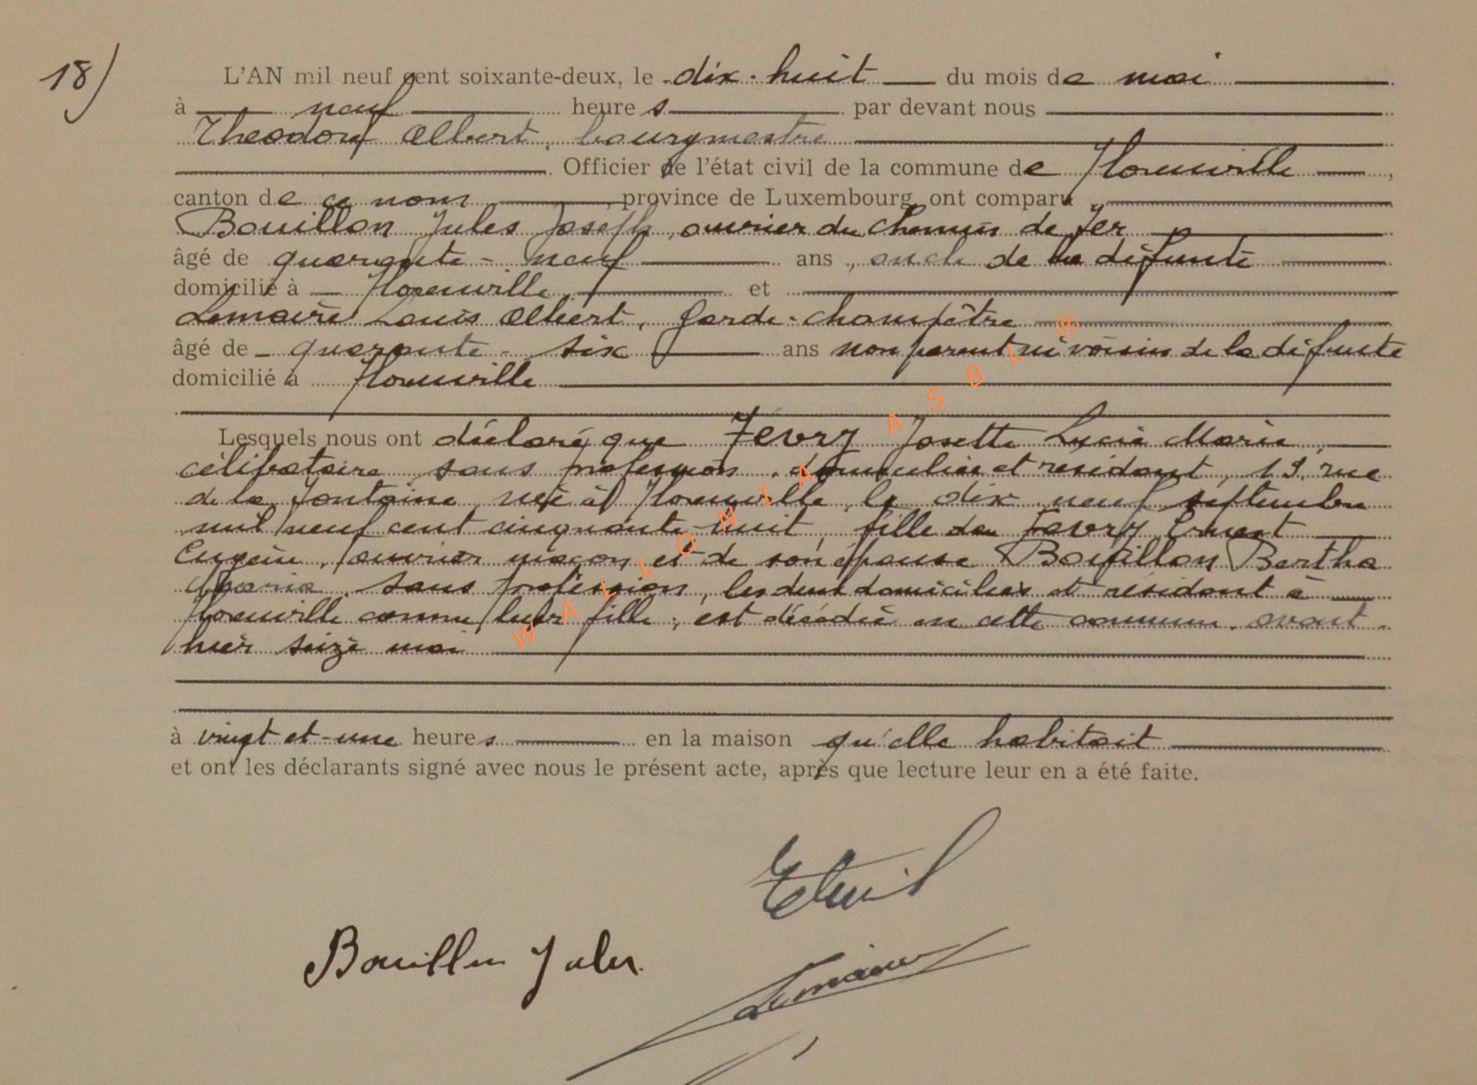 18)
L'AN mil neuf cent soixante-deux, le dix-huit du mois de mai
à neuf heures par devant nous
Theodore Albert, bourgmestre
Officier de l'état civil de la commune de Florenville,
canton de ce nom, province de Luxembourg, ont comparu
Bouillon Jules Joseph, ouvrier du chemin de fer
âgé de quarante-neuf ans, oncle de la défunte
domicilié à Florenville, et
Lemaire Louis Albert, garde-champêtre
âgé de quarante-six ans non parent ni voisin de la défunte
domicilié à Florenville
Lesquels nous ont déclaré que Févry Josette Lucie Marie,
célibataire, sans profession, domiciliée et résidant, 19, rue
de la Fontaine, née à Florenville, le dix-neuf septembre
mil neuf cent cinquante-huit, fille de Févry Ernest
Eugène, ouvrier maçon et de son épouse Bouillon Bertha
Maria, sans profession, les deux domiciliés et résidant à
Florenville comme leur fille, est décédée en cette commune, avant-
hier seize mai
à vingt et-une heures en la maison qu'elle habitait
et ont les déclarants signé avec nous le présent acte, après que lecture leur en a été faite.
Bouillon Jules
Lemaire
WALLONIA ASBL ®